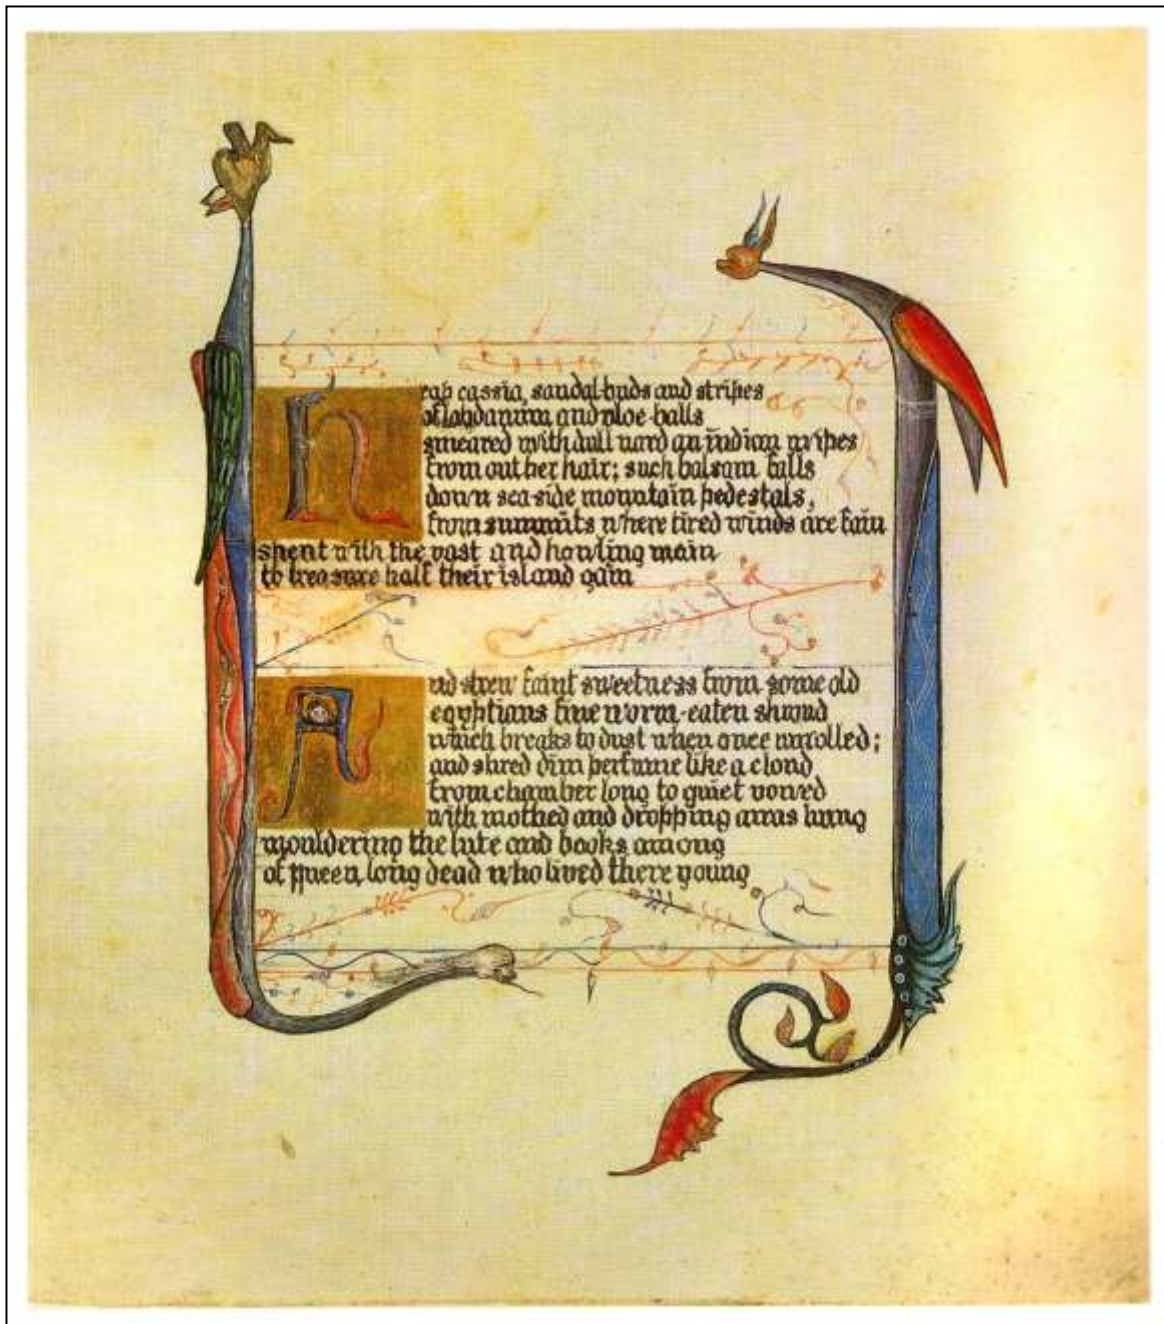 Heap cassia, sandal-buds and stripes
of labdanum and aloe-balls
smeared with dull nard an indian wipes
from out her hair; such balsam falls
down sea-side mountain pedestals,
from summits where tired winds are fain
spent with the vast and howling main
to treasure half their island gain
And strew faint sweetness from some old
egyptians fine worm-eaten shroud
which breaks to dust when once unrolled;
and shred dim perfume like a cloud
from chamber long to quiet vowed
with mothed and dropping arras hung
mouldering the lute and books among
of queen, long dead who lived there young